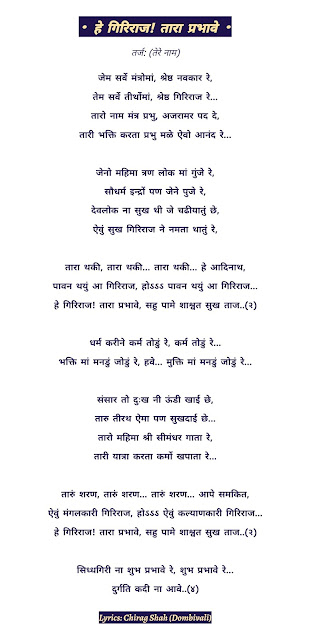 • हे गिरिराज! तारा प्रभावे •
तर्ज: (तेरे नाम)
जेम सर्वे मंत्रोमां, श्रेष्ठ नवकार रे,
तेम सर्वे तीर्थोमां, श्रेष्ठ गिरिराज रे...
तारो नाम मंत्र प्रभु, अजरामर पद दे,
तारी भक्ति करता प्रभु मळे ऐवो आनंद रे...
जेनो महिमा त्रण लोक मां गुंजे रे,
सौधर्म इन्द्रों पण जेने पुजे रे,
देवलोक ना सुख थी जे चढीयातुं छे,
ऐवुं सुख गिरिराज ने नमता थातुं रे,
तारा थकी, तारा थकी... तारा थकी... हे आदिनाथ,
पावन थयुं आ गिरिराज, होऽऽऽ पावन थयुं आ गिरिराज...
हे गिरिराज! तारा प्रभावे, सहु पामे शाश्वत सुख ताज..(२)
धर्म करीने कर्म तोडुं रे, कर्म तोडुं रे...
भक्ति मां मनडुं जोडुं रे, हवे... मुक्ति मां मनडुं जोडुं रे...
संसार तो दुःख नी ऊंडी खाई छे,
तारु तीरथ ऐमा पण सुखदाई छे...
तारो महिमा श्री सीमंधर गाता रे,
तारी यात्रा करता कर्मो खपाता रे...
तारुं शरण, तारुं शरण... तारुं शरण... आपे समकित,
ऐवुं मंगलकारी गिरिराज, होऽऽऽ ऐवुं कल्याणकारी गिरिराज...
हे गिरिराज! तारा प्रभावे, सहु पामे शाश्वत सुख ताज..(२)
सिध्धगिरी ना शुभ प्रभावे रे, शुभ प्रभावे रे...
दुर्गति कदी ना आवे..(४)
Lyrics: Chirag Shah (Dombivali)